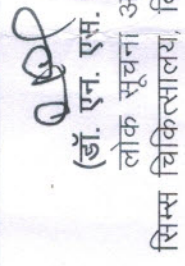 (डॉ. एन. एस.
लोक सूचना
सिम्स चिकित्सालय,